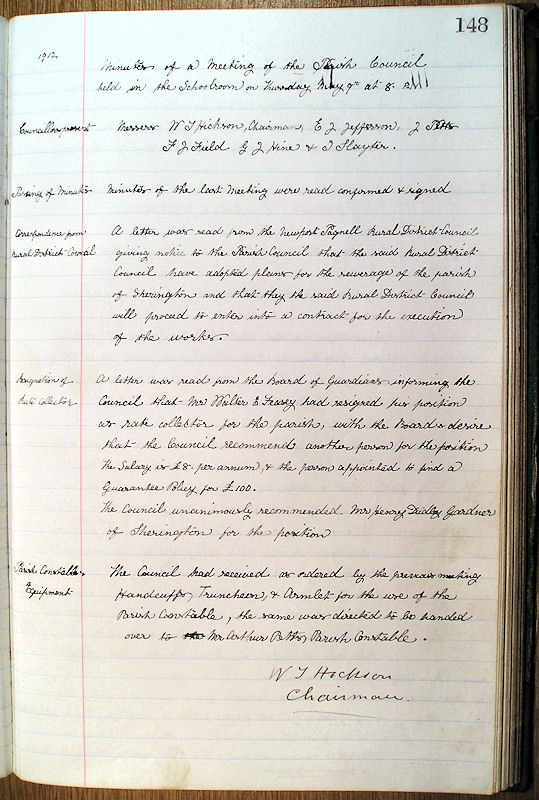 148
1912
Minutes of a Meeting of the Parish Council
held in the Schoolroom on Thursday May 9th at 8.
Councillors present
Messrs W J Hickson, Chairman, E J Jefferson, J Petts
F J Field G J Hine & J Slayter.
Passing of Minutes
Minutes of the last Meeting were read confirmed & signed
Correspondence from
Rural District Council
A letter was read from the Newport Pagnell Rural District Council
giving notice to the Parish Council that the said Rural District
Council have adopted plans for the sewerage of the parish
of Sherington and that they the said Rural District Council
will proceed to enter into a contract for the execution
of the works.
Resignation of
Rate Collector
A letter was read from the Board of Guardians informing the
Council that Mr Walter E Feasey had resigned his position
as rate collector for the parish, with the Boards desire
that the Council recommend another person for the position
The Salary is £8. per annum, & the person appointed to find a
Guarantee Policy for £100.
The Council unanimously recommended Mr Henry Dudley Gardner
of Sherington for the position
Parish Constable
Equipment
The Council had received as ordered by the previous meeting
Handcuffs, Truncheon, & Armlet for the use of the
Parish Constable, the same was directed to be handed
over to the Mr Arthur Petts, Parish Constable.
W J Hickson
Chairman.